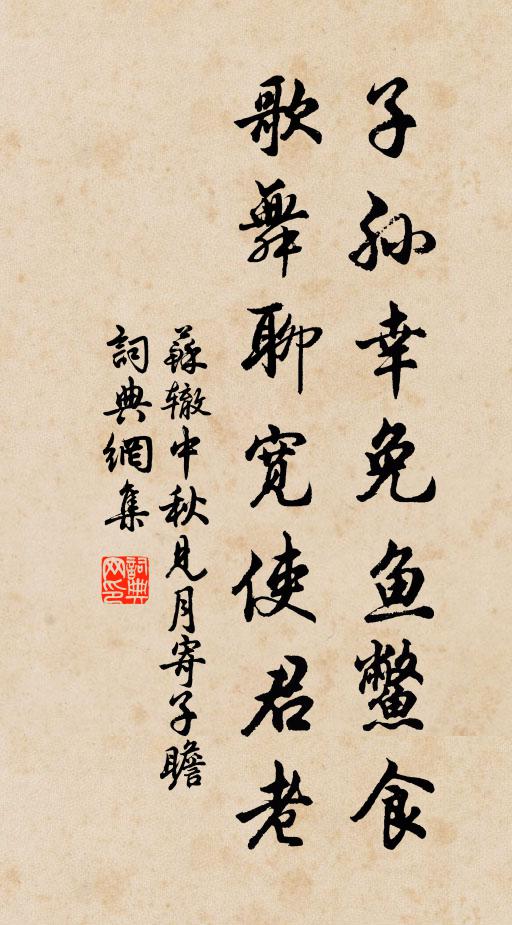 子孙幸免鱼鳖食
歌舞聊宽使君老
蘇辙中秋見月寄子瞻
詞典網集
詞典网印